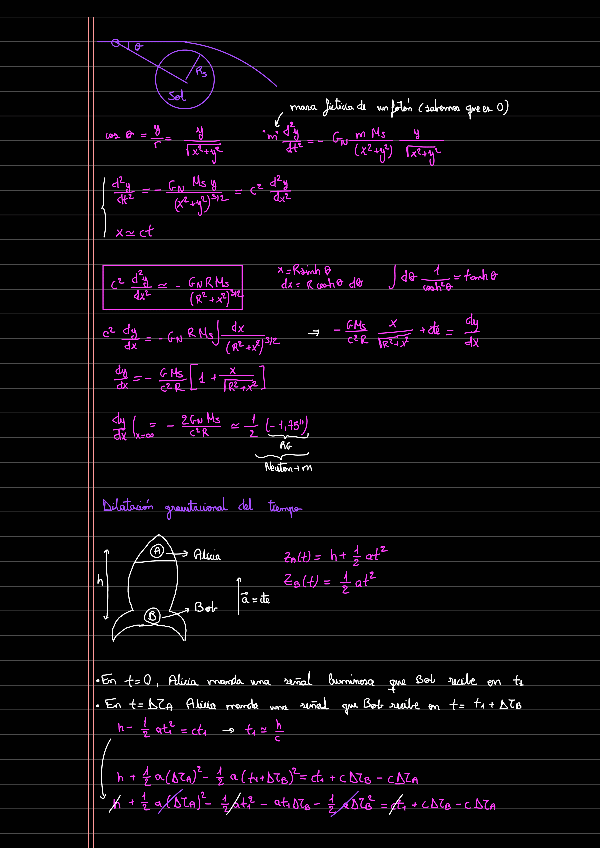 θ
Rs
Sol
masa ficticia de un fotón (sabemos que es 0)
cos θ = y/r = y/√(x²+y²)    "m" d²y/dt² = - G_N m Ms/(x²+y²) y/√(x²+y²)
d²y/dt² = - G_N Ms y/(x²+y²)^3/2 = c² d²y/dx²
x ≃ ct
c² d²y/dx² ≃ - G_N R Ms/(R²+x²)^3/2    x = R sinh θ    ∫ dθ 1/cosh²θ = tanh θ
dx = R cosh θ dθ
c² dy/dx = - G_N R Ms ∫ dx/(R²+x²)^3/2 → - G Ms/c²R x/√(R²+x²) + cte = dy/dx
dy/dx = - G Ms/c²R [1 + x/√(R²+x²)]
dy/dx |x=∞ = - 2G_N Ms/c²R ≃ 1/2 (-1,75")
RG
Newton + m
Dilatación gravitacional del tiempo
A → Alicia    z_A(t) = h + 1/2 at²
h    z_B(t) = 1/2 at²
B → Bob    a⃗ = cte
• En t=0, Alicia manda una señal luminosa que Bob recibe en t₁
• En t=Δτ_A Alicia manda una señal que Bob recibe en t = t₁ + Δτ_B
h - 1/2 at₁² = ct₁ → t₁ ≃ h/c
h + 1/2 a(Δτ_A)² - 1/2 a(t₁+Δτ_B)² = ct₁ + cΔτ_B - cΔτ_A
h + 1/2 a(Δτ_A)² - 1/2 at₁² - at₁Δτ_B - 1/2 aΔτ_B² = ct₁ + cΔτ_B - cΔτ_A